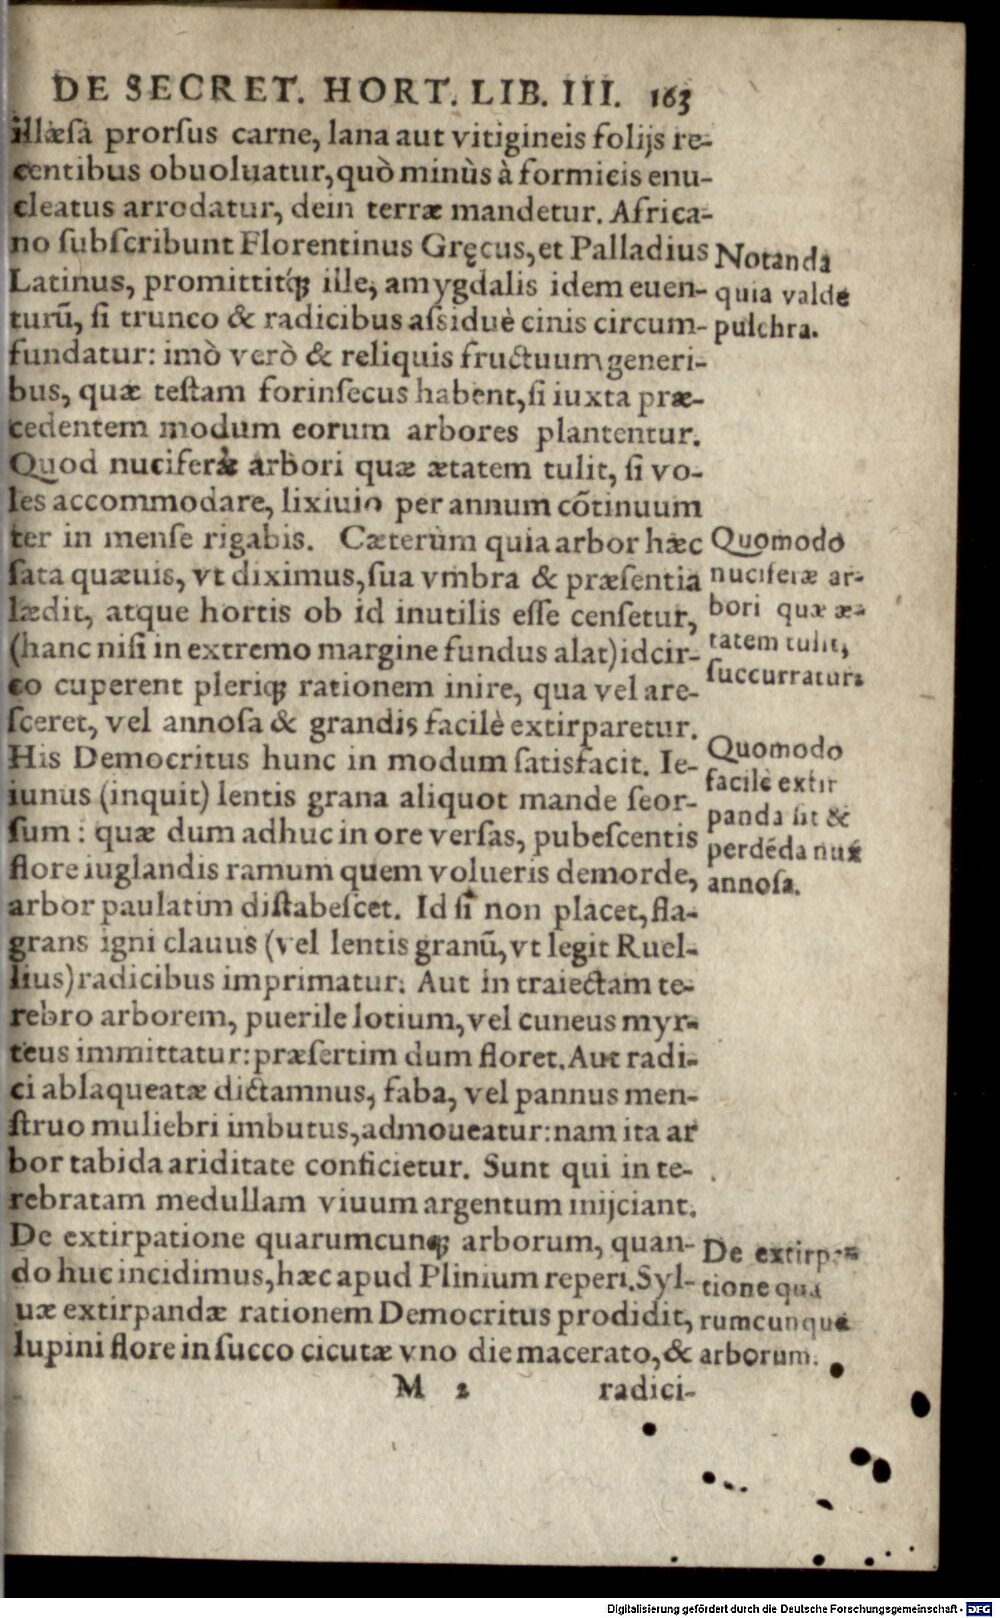 DE SECRET. HORT. LIB. III. 163
illæsa prorſus carne, lana aut vitigineis folijs re-
centibus obuoluatur, quò minùs à formicis enu-
cleatus arrodatur, dein terræ mandetur. Africa-
no ſubſcribunt Florentinus Gręcus, et Palladius
Latinus, promittitq́ꝫ ille, amygdalis idem euen-
turũ, ſi trunco & radicibus aſsiduè cinis circum-
fundatur: imò verò & reliquis fructuum generi-
bus, quæ teſtam forinſecus habent, ſi iuxta præ-
cedentem modum eorum arbores plantentur.
Quod nuciferæ arbori quæ ætatem tulit, ſi vo-
les accommodare, lixiuio per annum cõtinuum
ter in menſe rigabis. Cæterùm quia arbor hæc
ſata quæuis, vt diximus, ſua vmbra & præſentia
lædit, atque hortis ob id inutilis eſſe cenſetur,
(hanc niſi in extremo margine fundus alat) idcir-
co cuperent pleriqꝫ rationem inire, qua vel are-
ſceret, vel annoſa & grandis facilè extirparetur.
His Democritus hunc in modum ſatisfacit. Ie-
iunus (inquit) lentis grana aliquot mande ſeor-
ſum: quæ dum adhuc in ore verſas, pubeſcentis
flore iuglandis ramum quem volueris demorde,
arbor paulatim diſtabeſcet. Id ſi non placet, fla-
grans igni clauus (vel lentis granũ, vt legit Ruel-
lius) radicibus imprimatur. Aut in traiectam te-
rebro arborem, puerile lotium, vel cuneus myr-
teus immittatur: præſertim dum floret. Aut radi-
ci ablaqueatæ dictamnus, faba, vel pannus men-
ſtruo muliebri imbutus, admoueatur: nam ita ar
bor tabida ariditate conficietur. Sunt qui in te-
rebratam medullam viuum argentum inijciant.
De extirpatione quarumcunqꝫ arborum, quan-
do huc incidimus, hæc apud Plinium reperi. Syl-
uæ extirpandæ rationem Democritus prodidit,
lupini flore in ſucco cicutæ vno die macerato, &
M 2 radici-
Notanda
quia valde
pulchra.
Quomodo
nuciferæ ar-
bori quæ æ-
tatem tulit,
ſuccurratur.
Quomodo
facilè extir
panda ſit &
perdẽda nux
annoſa.
De extirpa-
tione qua
rumcunque
arborum.
Digitalisierung gefördert durch die Deutsche Forschungsgemeinschaft - DFG